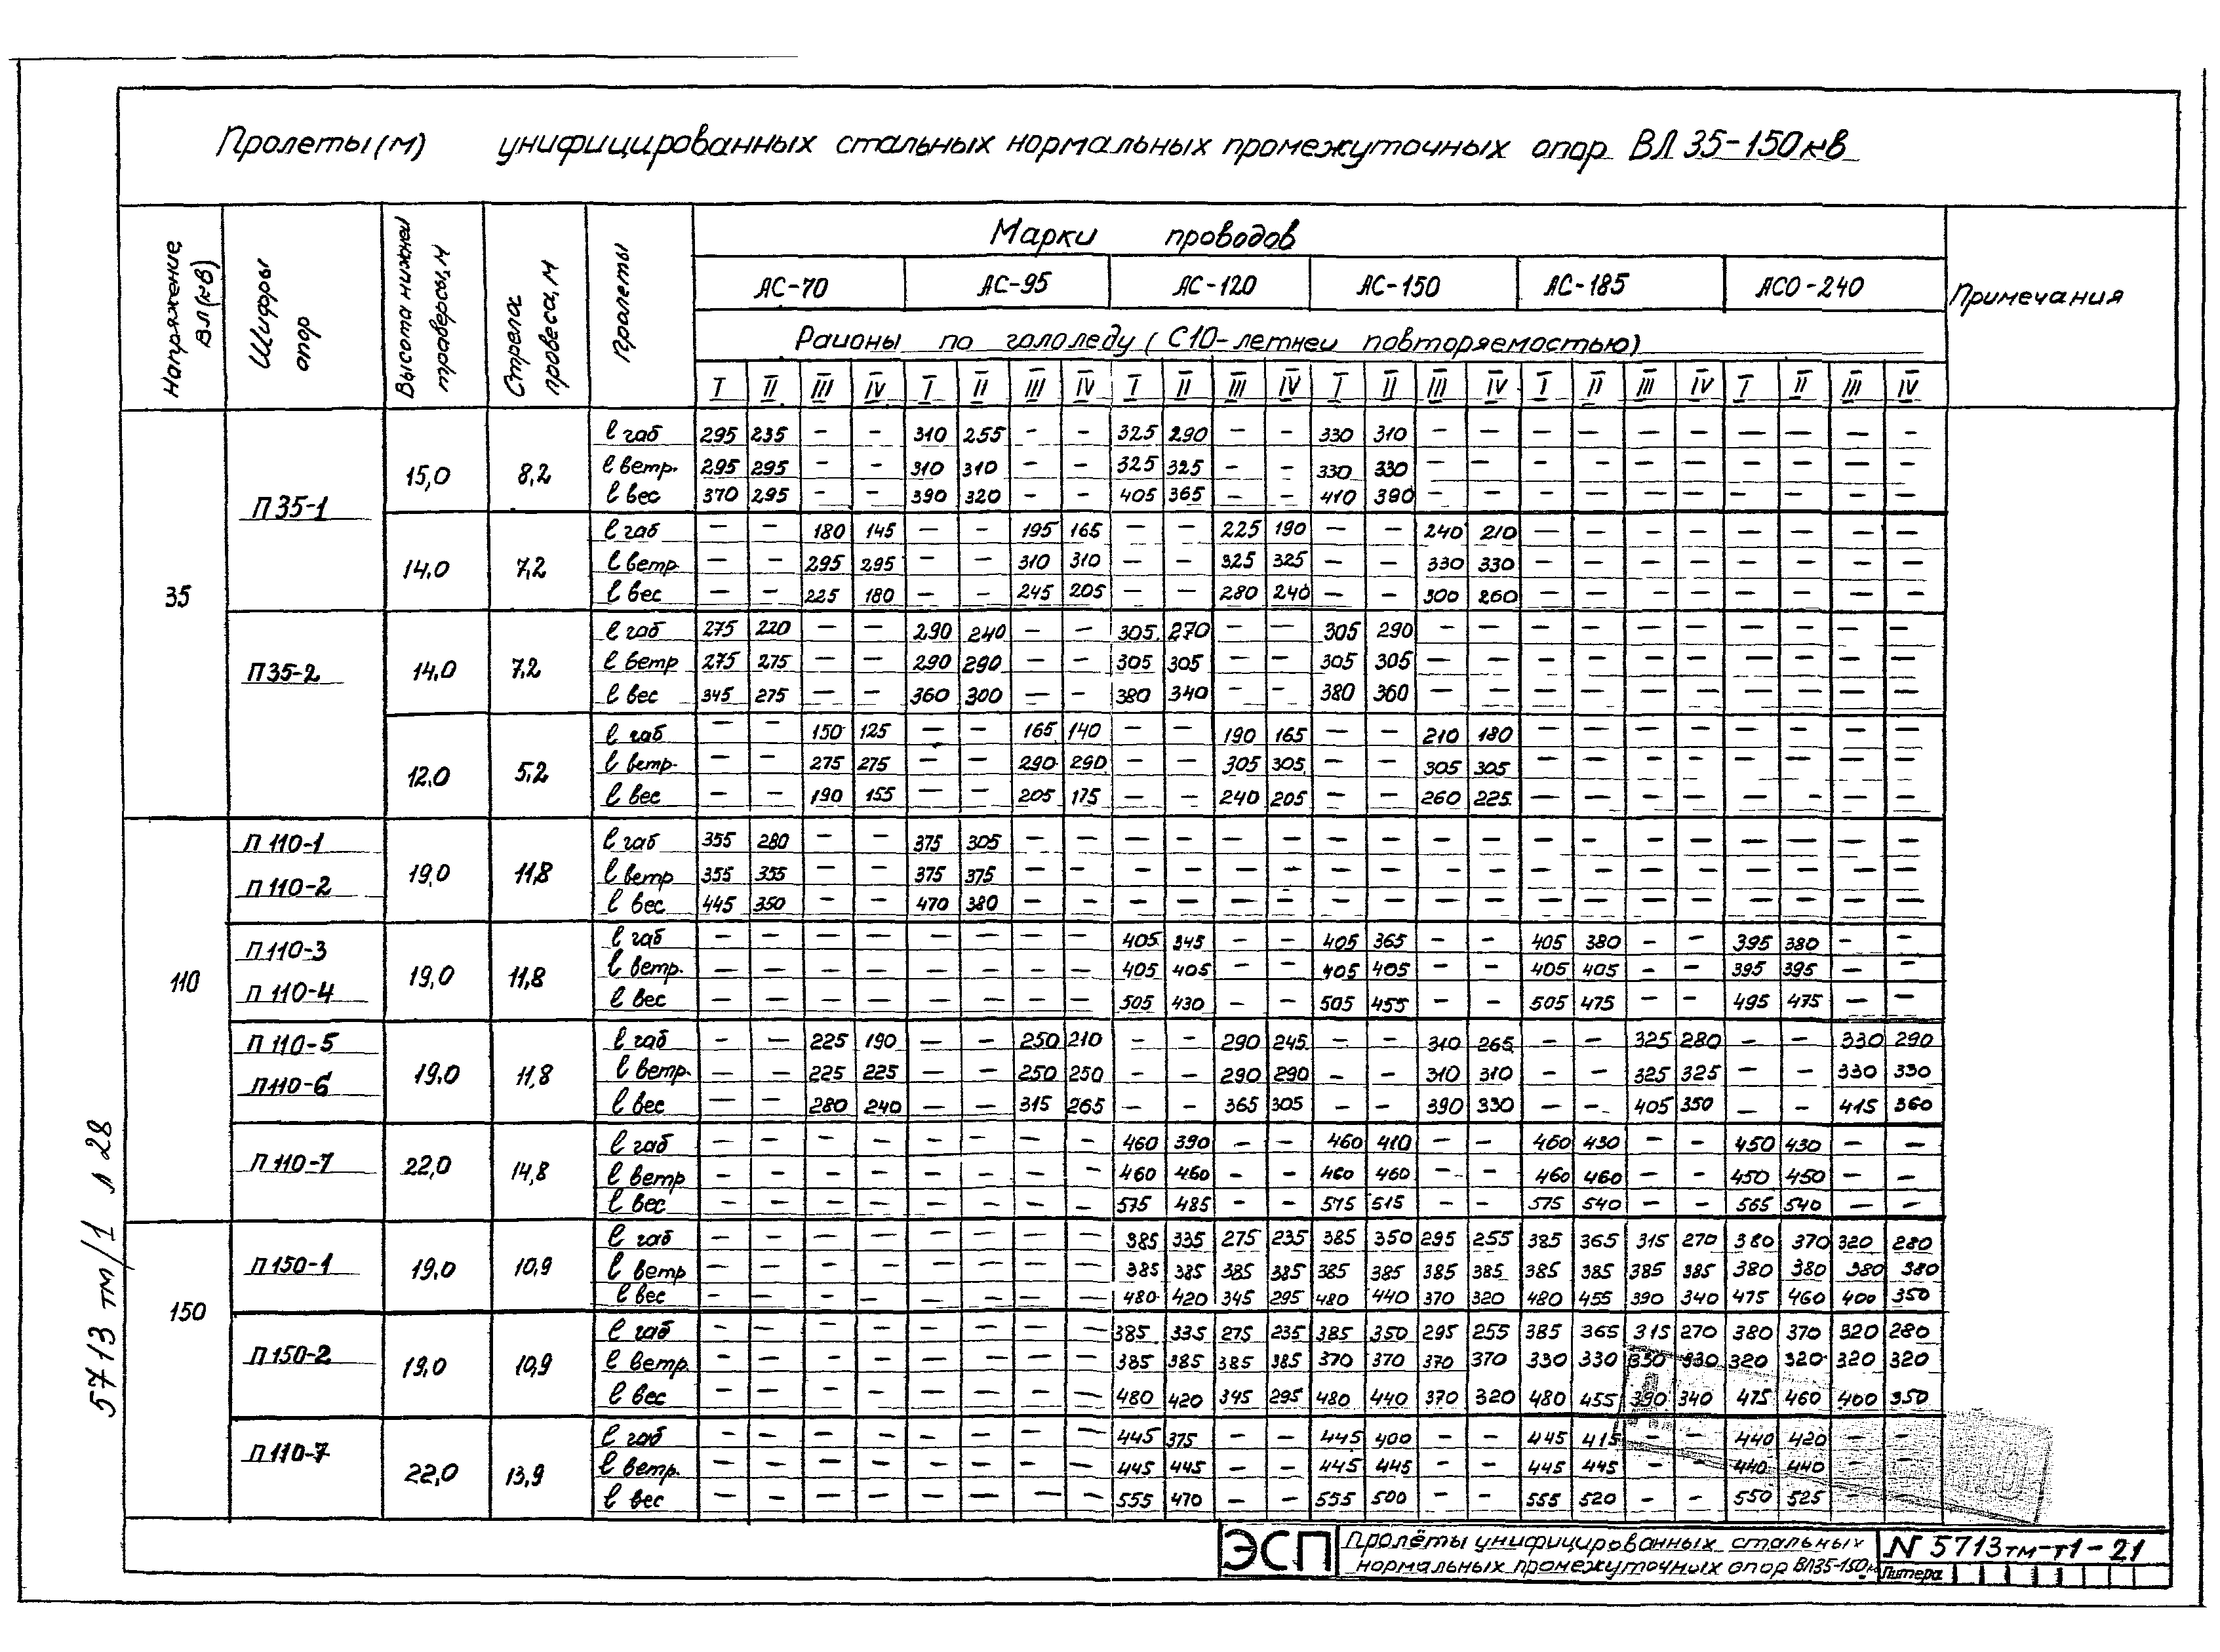 Пролеты(м) унифицированных стальных нормальных промежуточных опор ВЛ 35-150кв
Напряжение ВЛ(кВ) Шифры опор Высота нижней траверсы, м Стрела провеса, м Пролеты Марки проводов Примечания
АС-70 АС-95 АС-120 АС-150 АС-185 АСО-240
Районы по гололеду (С10-летней повторяемостью)
I II III IV I II III IV I II III IV I II III IV I II III IV I II III IV
35
П35-1
15,0 8,2
l габ 295 235 – – 310 255 – – 325 290 – – 330 310 – – – – – – – – – –
l ветр. 295 295 – – 310 310 – – 325 325 – – 330 330 – – – – – – – – – –
l вес 370 295 – – 390 320 – – 405 365 – – 410 390 – – – – – – – – – –
14,0 7,2
l габ – – 180 145 – – 195 165 – – 225 190 – – 240 210 – – – – – – – –
l ветр. – – 295 295 – – 310 310 – – 325 325 – – 330 330 – – – – – – – –
l вес – – 225 180 – – 245 205 – – 280 240 – – 300 260 – – – – – – – –
П35-2
14,0 7,2
l габ 275 220 – – 290 240 – – 305 270 – – 305 290 – – – – – – – – – –
l ветр 275 275 – – 290 290 – – 305 305 – – 305 305 – – – – – – – – – –
l вес 345 275 – – 360 300 – – 380 340 – – 380 360 – – – – – – – – – –
12,0 5,2
l габ – – 150 125 – – 165 140 – – 190 165 – – 210 180 – – – – – – – –
l ветр. – – 275 275 – – 290 290 – – 305 305 – – 305 305 – – – – – – – –
l вес – – 190 155 – – 205 175 – – 240 205 – – 260 225 – – – – – – – –
110
П110-1
П110-2
19,0 11,8
l габ 355 280 – – 375 305 – – – – – – – – – – – – – – – – – –
l ветр 355 355 – – 375 375 – – – – – – – – – – – – – – – – – –
l вес 445 350 – – 470 380 – – – – – – – – – – – – – – – – – –
П110-3
П110-4
19,0 11,8
l габ – – – – – – – – 405 345 – – 405 365 – – 405 380 – – 395 380 – –
l ветр. – – – – – – – – 405 405 – – 405 405 – – 405 405 – – 395 395 – –
l вес – – – – – – – – 505 430 – – 505 455 – – 505 475 – – 495 475 – –
П110-5
П110-6
19,0 11,8
l габ – – 225 190 – – 250 210 – – 290 245 – – 310 265 – – 325 280 – – 330 290
l ветр. – – 225 225 – – 250 250 – – 290 290 – – 310 310 – – 325 325 – – 330 330
l вес – – 280 240 – – 315 265 – – 365 305 – – 390 330 – – 405 350 – – 415 360
П110-7
22,0 14,8
l габ – – – – – – – – 460 390 – – 460 410 – – 460 430 – – 450 430 – –
l ветр – – – – – – – – 460 460 – – 460 460 – – 460 460 – – 450 450 – –
l вес – – – – – – – – 575 485 – – 575 515 – – 575 540 – – 565 540 – –
150
П150-1
19,0 10,9
l габ – – – – – – – – 385 335 275 235 385 350 295 255 385 365 315 270 380 370 320 280
l ветр – – – – – – – – 385 385 385 385 385 385 385 385 385 385 385 385 380 380 380 380
l вес – – – – – – – – 480 420 345 295 480 440 370 320 480 455 390 340 475 460 400 350
П150-2
19,0 10,9
l габ – – – – – – – – 385 335 275 235 385 350 295 255 385 365 315 270 380 370 320 280
l ветр. – – – – – – – – 385 385 385 385 370 370 370 370 330 330 330 330 320 320 320 320
l вес – – – – – – – – 480 420 345 295 480 440 370 320 480 455 390 340 475 460 400 350
П110-7
22,0 13,9
l габ – – – – – – – – 445 375 – – 445 400 – – 445 415 – – 440 420 – –
l ветр. – – – – – – – – 445 445 – – 445 445 – – 445 445 – – 440 440 – –
l вес – – – – – – – – 555 470 – – 555 500 – – 555 520 – – 550 525 – –
5713 тм/1 л 28
ЭСП
Пролёты унифицированных стальных
нормальных промежуточных опор ВЛ35-150к
N 5713тм-т1-21
Литера